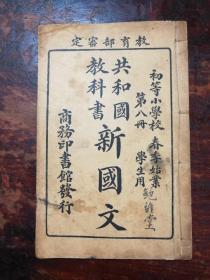 教育部審定
初等小學校
春季始業
第八冊
學生用
共和國
教科書
新國文
商務印書館發行